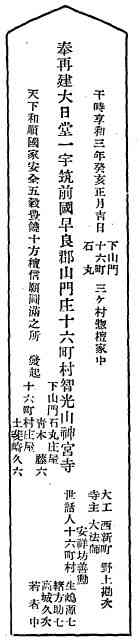 下山門
十六町
石丸
三ヶ村惣檀家中
干時享和三年癸亥正月吉日
奉再建大日堂一宇筑前國早良郡山門庄十六町村智光山神宮寺
天下和順國家安全五穀豊饒十方檀信願圓満之所
發起
下山門石丸庄屋
青木藤六
十六町村庄屋
土斐崎久六
大工 西新町 野上勘次
寺主 大法師
安祥坊善勤
世話人十六町村
生嶋源七
轄方助七
高城久次
若者中